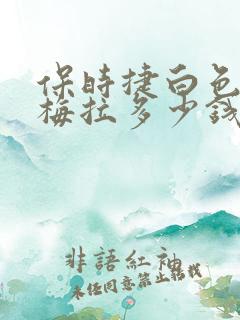 保時捷白色
梅拉多少錢
非語紅袖
未經同意禁止轉載